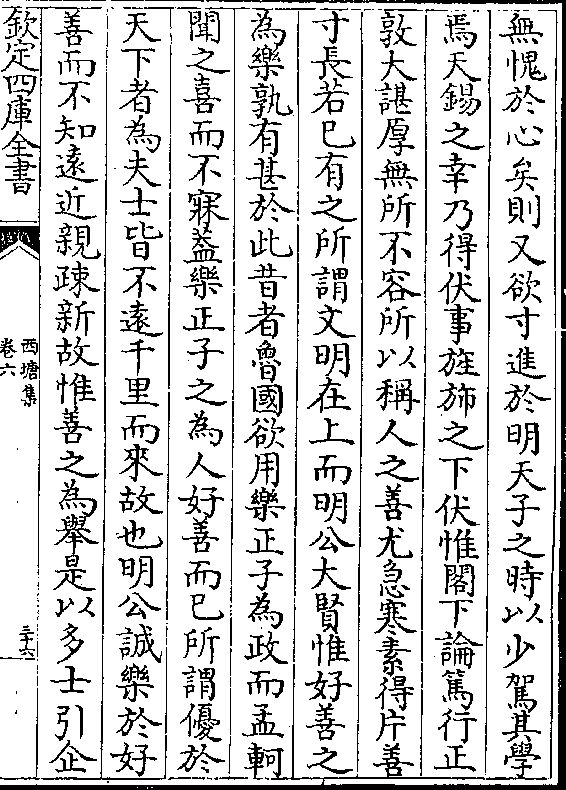 無愧於心矣則又欲寸進於明天子之時以少駕其學
焉天錫之幸乃得伏事旌斾之下伏惟閣下論篤行正
敦大諶厚無所不容所以稱人之善尤急寒素得片善
寸長若已有之所謂文明在上而明公大賢惟好善之
為樂孰有甚於此昔者魯國欲用樂正子為政而孟軻
聞之喜而不寐葢樂正子之為人好善而已所謂優於
天下者為夫士皆不逺千里而來故也明公誠樂於好
善而不知逺近親疎新故惟善之為舉是以多士引企
欽定四庫全書
西塘集
卷六
三十六